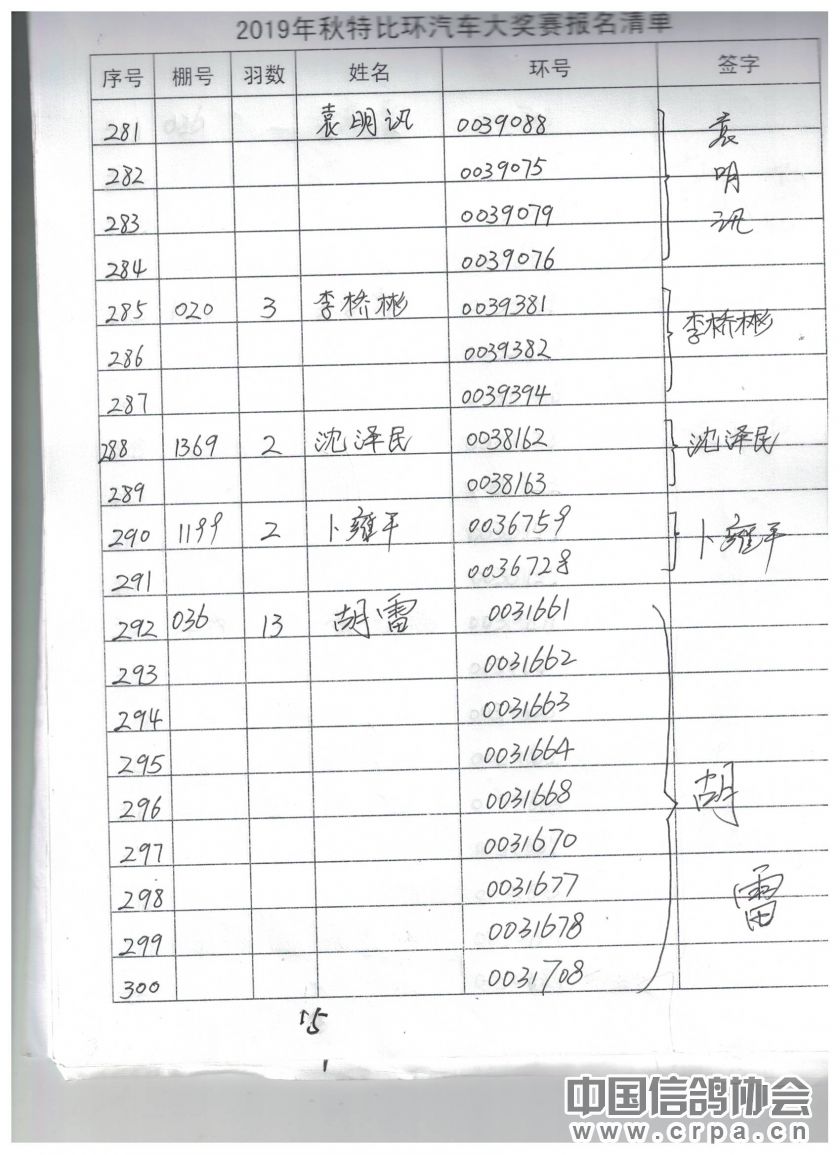 2019年秋特比环汽车大奖赛报名清单
序号 棚号 羽数 姓名 环号 签字
281 袁明汎 0039088 袁明汎
282 0039075
283 0039079
284 0039076
285 020 3 李桥彬 0039381 李桥彬
286 0039382
287 0039394
288 1369 2 沈泽民 0038162 沈泽民
289 0038163
290 1199 2 卜雍平 0036759 卜雍平
291 0036728
292 036 13 胡雷 0031661 胡雷
293 0031662
294 0031663
295 0031664
296 0031668
297 0031670
298 0031677
299 0031678
300 0031708
15
中国信鸽协会
www.crpa.cn